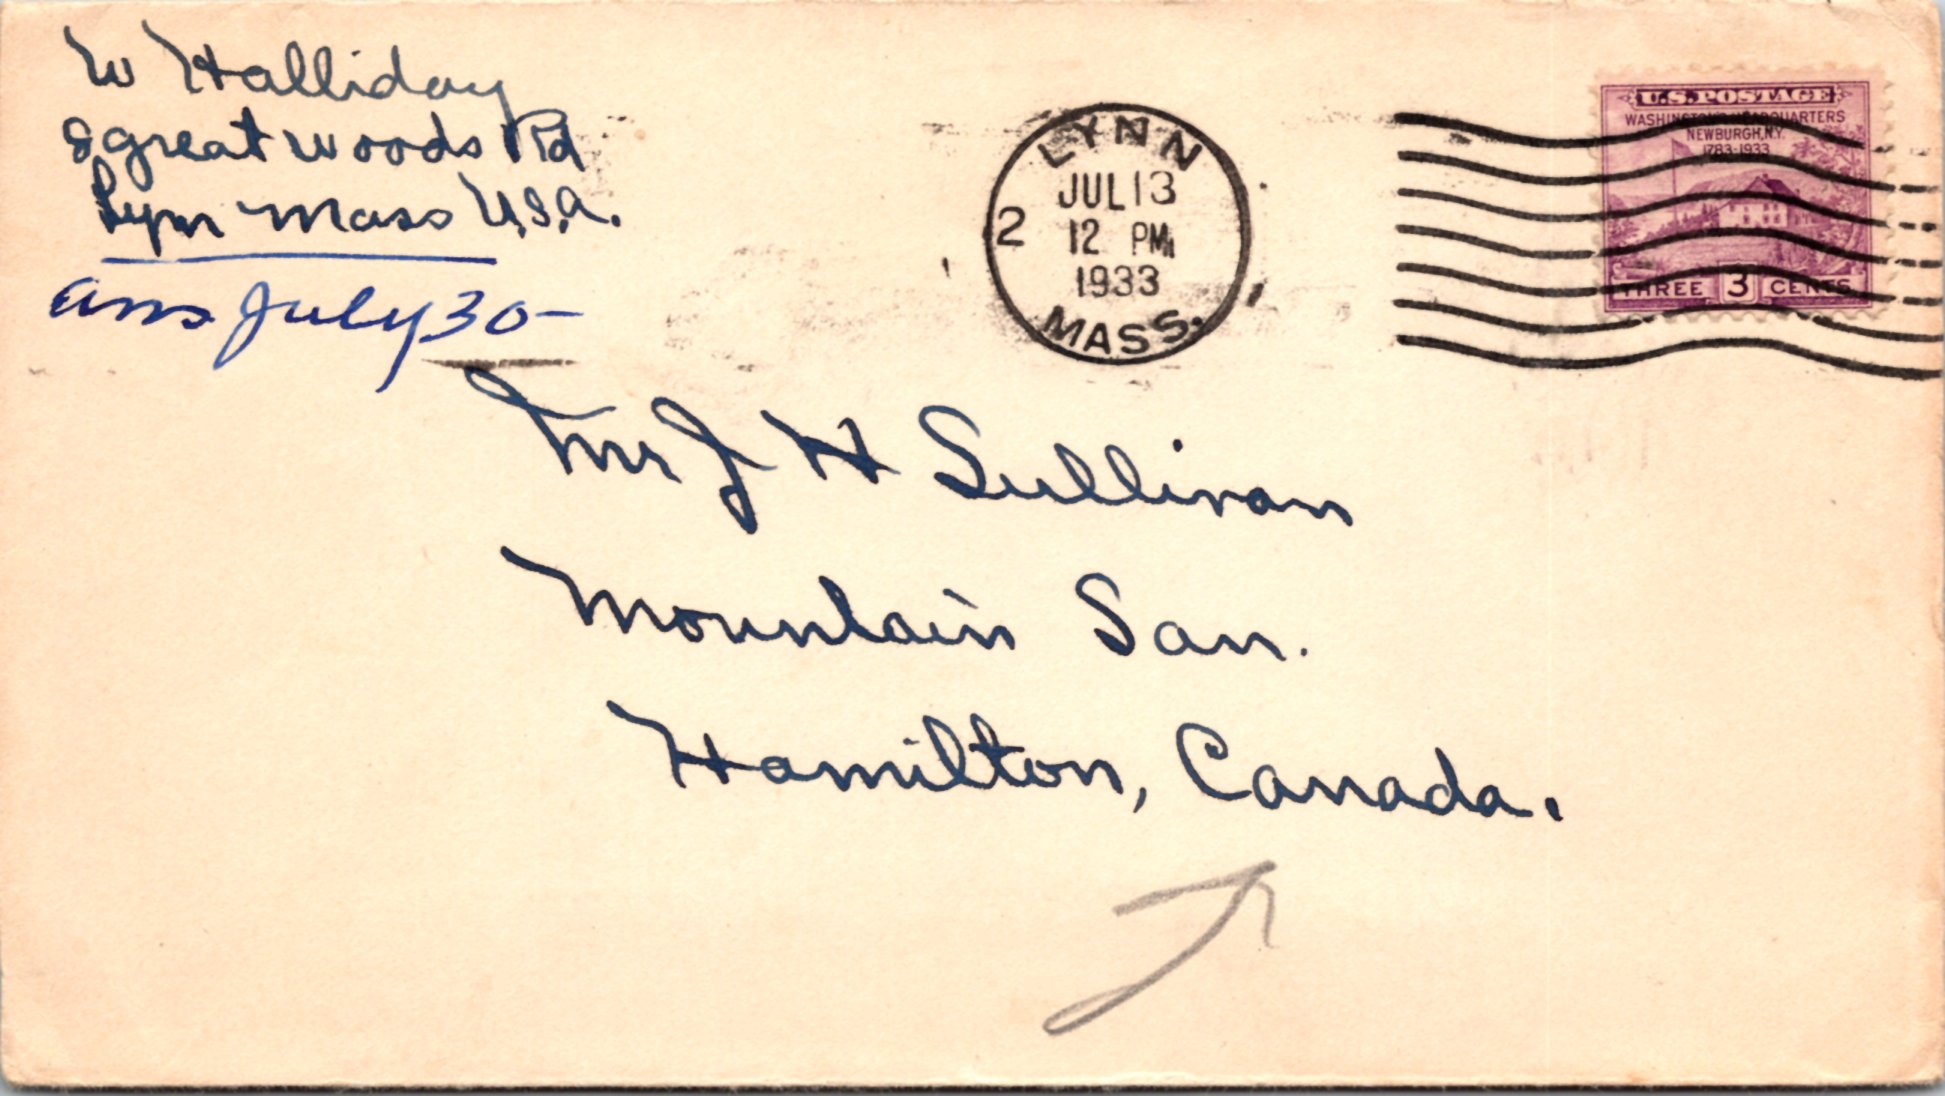 W Halliday
8 Great Woods Rd
Lynn Mass U.S.A.
ans July 30 -
LYNN
JUL 13
2 12 PM
1933
MASS.
U.S. POSTAGE
WASHINGTON'S HEADQUARTERS
NEWBURGH, N.Y.
1783-1933
THREE 3 CENTS
Mr J H Sullivan
Mountain San.
Hamilton, Canada.